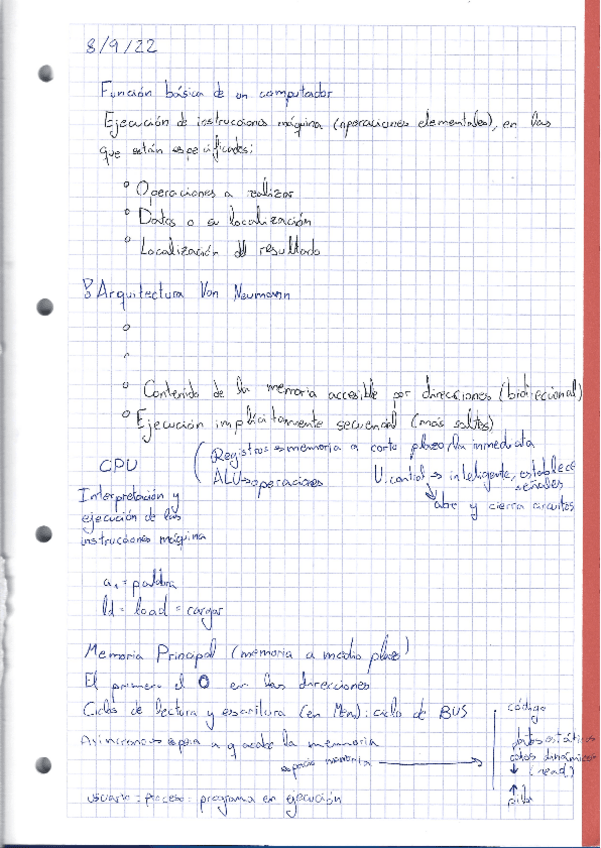 8/9/22
Función básica de un computador
Ejecución de instrucciones máquina (operaciones elementales), en las
que están especificadas:
° Operaciones a realizar
° Datos o su localización
° Localización del resultado
Arquitectura Von Neumann
° Contenido de la memoria accesible por direcciones (bidireccional)
° Ejecución implícitamente secuencial (más saltos)
CPU
Registros → memoria a corto plazo, la inmediata
ALU → operaciones
U. control → inteligente, establece
señales
abre y cierra circuitos
Interpretación y
ejecución de las
instrucciones máquina
= palabra
ld = load = cargar
Memoria Principal (memoria a medio plazo)
El primero el 0 en las direcciones
Ciclos de lectura y escritura (en Mem): ciclo de BUS
Asíncrono → espera a q acabe la memoria
espacio memoria →
código
datos estáticos
datos dinámicos
↓
↑
pila
usuario: proceso: programa en ejecución